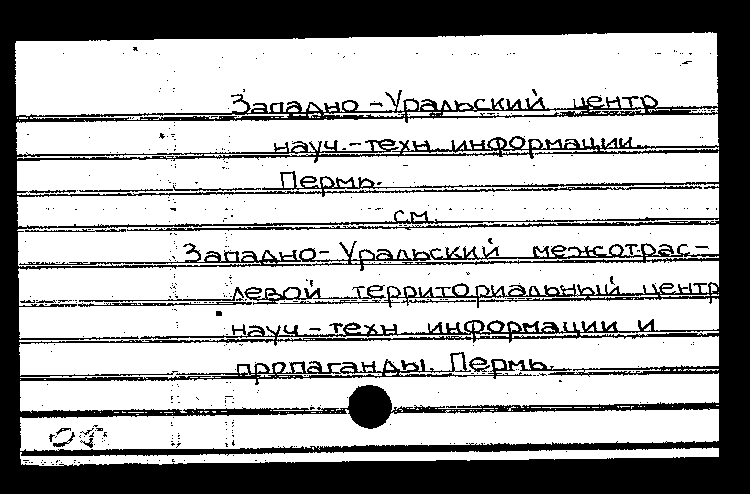 Западно-Уральский центр
науч.-техн. информации.
Пермь.
см.
Западно-Уральский межотрас-
левой территориальный центр
науч-техн. информации и
пропаганды. Пермь.
ОФ